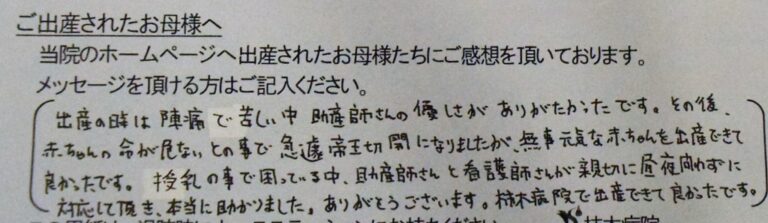 ご出産されたお母様へ
当院のホームページへ出産されたお母様たちにご感想を頂いております。
メッセージを頂ける方はご記入ください。
出産の時は陣痛で苦しい中 助産師さんの優しさがありがたかったです。その後、
赤ちゃんの命が危ないとの事で急遽帝王切開になりましたが、無事元気な赤ちゃんを出産できて
良かったです。授乳の事で困っている中、助産師さんと看護師さんが親切に昼夜問わずに
対応して頂き、本当に助かりました。ありがとうございます。柿木病院で出産できて良かったです。
柿木病院